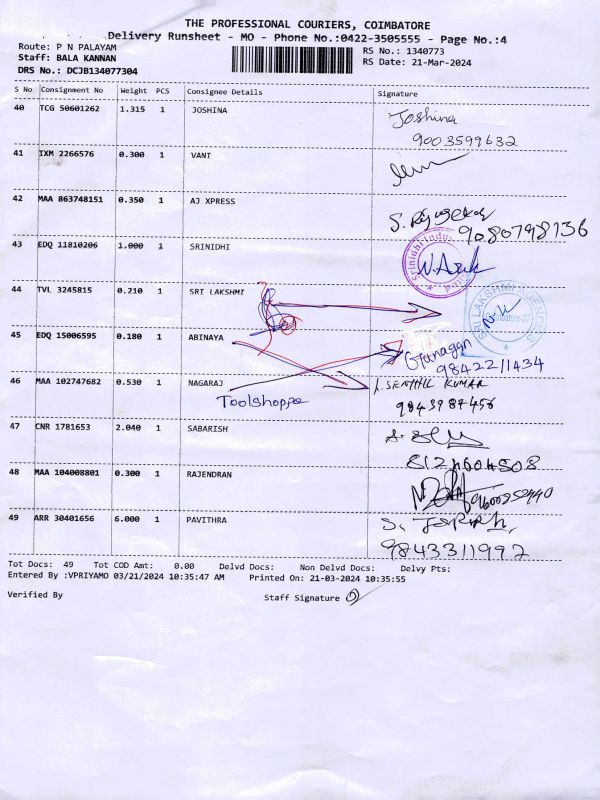 THE PROFESSIONAL COURIERS, COIMBATORE
Delivery Runsheet - MO - Phone No.:0422-3505555 - Page No.:4
Route: P N PALAYAM
RS No.: 1340773
Staff: BALA KANNAN
RS Date: 21-Mar-2024
DRS No.: DCJB134077304
S No Consignment No Weight PCS Consignee Details Signature
40 TCG 50601262 1.315 1 JOSHINA Joshina
9003599632
41 IXM 2266576 0.300 1 VANI
42 MAA 863748151 0.350 1 AJ XPRESS
9080798136
43 EDQ 11810206 1.000 1 SRINIDHI
44 TVL 3245815 0.210 1 SRI LAKSHMI SRI LAKSHMI AGENCIES
45 EDQ 15006595 0.180 1 ABINAYA
9842211434
46 MAA 102747682 0.530 1 NAGARAJ SENTHIL KUMAR
Toolshoppe 9843987456
47 CNR 1781653 2.040 1 SABARISH
8124604508
48 MAA 104008801 0.300 1 RAJENDRAN
49 ARR 30401656 6.000 1 PAVITHRA
9843311992
Tot Docs: 49 Tot COD Amt: 0.00 Delvd Docs: Non Delvd Docs: Delvy Pts:
Entered By :VPRIYAMO 03/21/2024 10:35:47 AM Printed On: 21-03-2024 10:35:55
Verified By Staff Signature